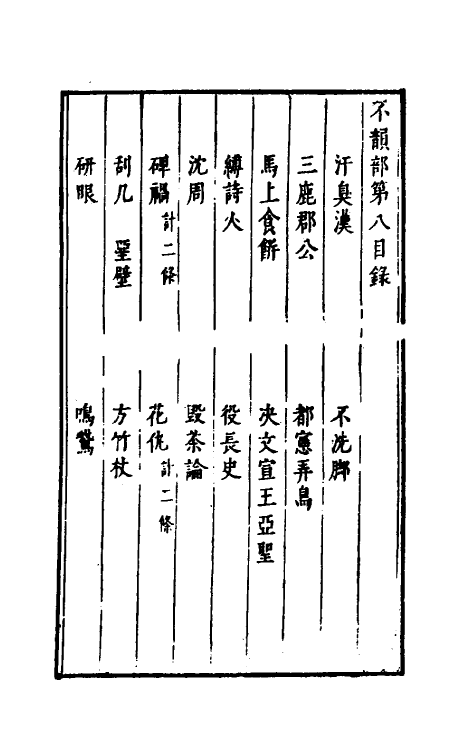 不韻部第八目錄
汗臭漢　不洗腳
三鹿郡公　都憲弄鳥
馬上食餅　決文宣王亞聖
縛詩火　役長史
沈周　毀茶論
碑禍計二條　花仇計二條
刮几　堊壁　方竹杖
研眼　鳴鵞